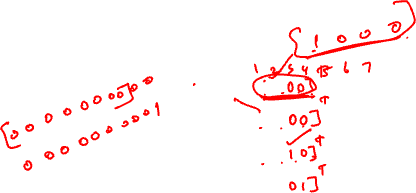 [1 0 0 0]
1 2 3 4 5 6 7
[0 0 0 0 0 0 0 0 0] 0 0
. . 0 0]ᵀ
0 0 0 0 0 0 0 0 0 1
. . 0 0]ᵀ
. . 1 0]ᵀ
0 1]ᵀ